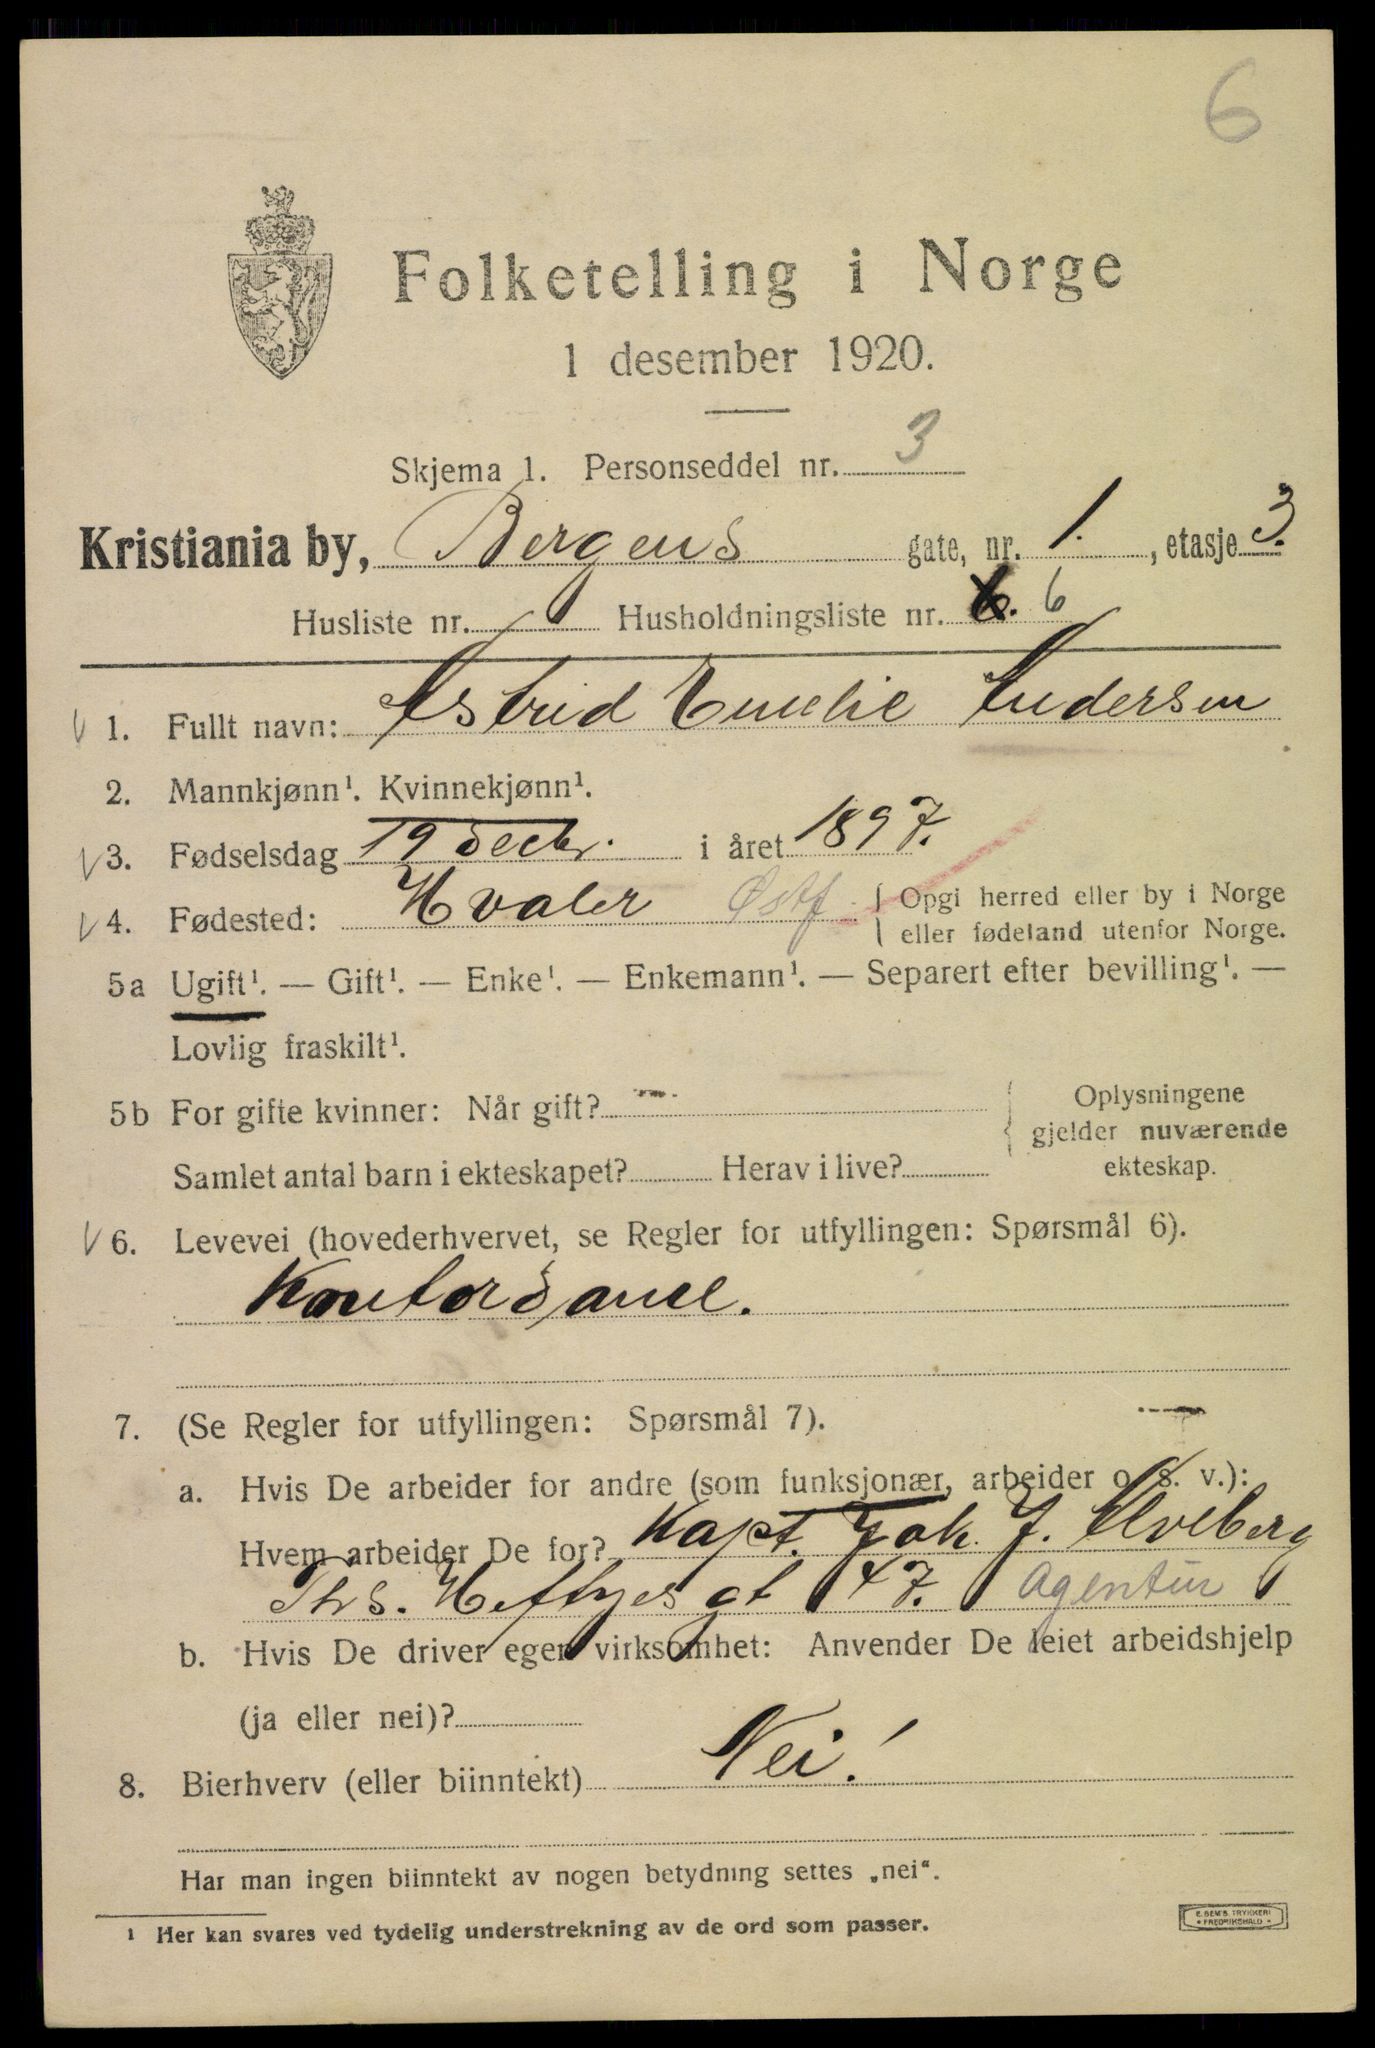 6
Folketelling i Norge
1 desember 1920.
Skjema 1. Personseddel nr. 3
Kristiania by, Bergens gate, nr. 1. , etasje 3.
Husliste nr. Husholdningsliste nr. 6. 6
1. Fullt navn: Astrid Emelie Andersen
2. Mannkjønn¹. Kvinnekjønn¹.
3. Fødselsdag 19 decbr. i året 1897.
4. Fødested: Hvaler Østf { Opgi herred eller by i Norge
eller fødeland utenfor Norge.
5a Ugift¹. — Gift¹. — Enke¹. — Enkemann¹. — Separert efter bevilling¹. —
Lovlig fraskilt¹.
5b For gifte kvinner: Når gift? { Oplysningene
gjelder nuværende
Samlet antal barn i ekteskapet? Herav i live? ekteskap.
6. Levevei (hovederhvervet, se Regler for utfyllingen: Spørsmål 6).
Kontordame.
7. (Se Regler for utfyllingen: Spørsmål 7).
a. Hvis De arbeider for andre (som funksjonær, arbeider o. s. v.):
Hvem arbeider De for? Kapt. Joh. J. Alveberg
Ths. Heftyes gt 47. Agentur
b. Hvis De driver egen virksomhet: Anvender De leiet arbeidshjelp
(ja eller nei)?
8. Bierhverv (eller biinntekt) Nei!
Har man ingen biinntekt av nogen betydning settes „nei“.
¹ Her kan svares ved tydelig understrekning av de ord som passer.
E. SEM'S TRYKKERI
• FREDRIKSHALD •